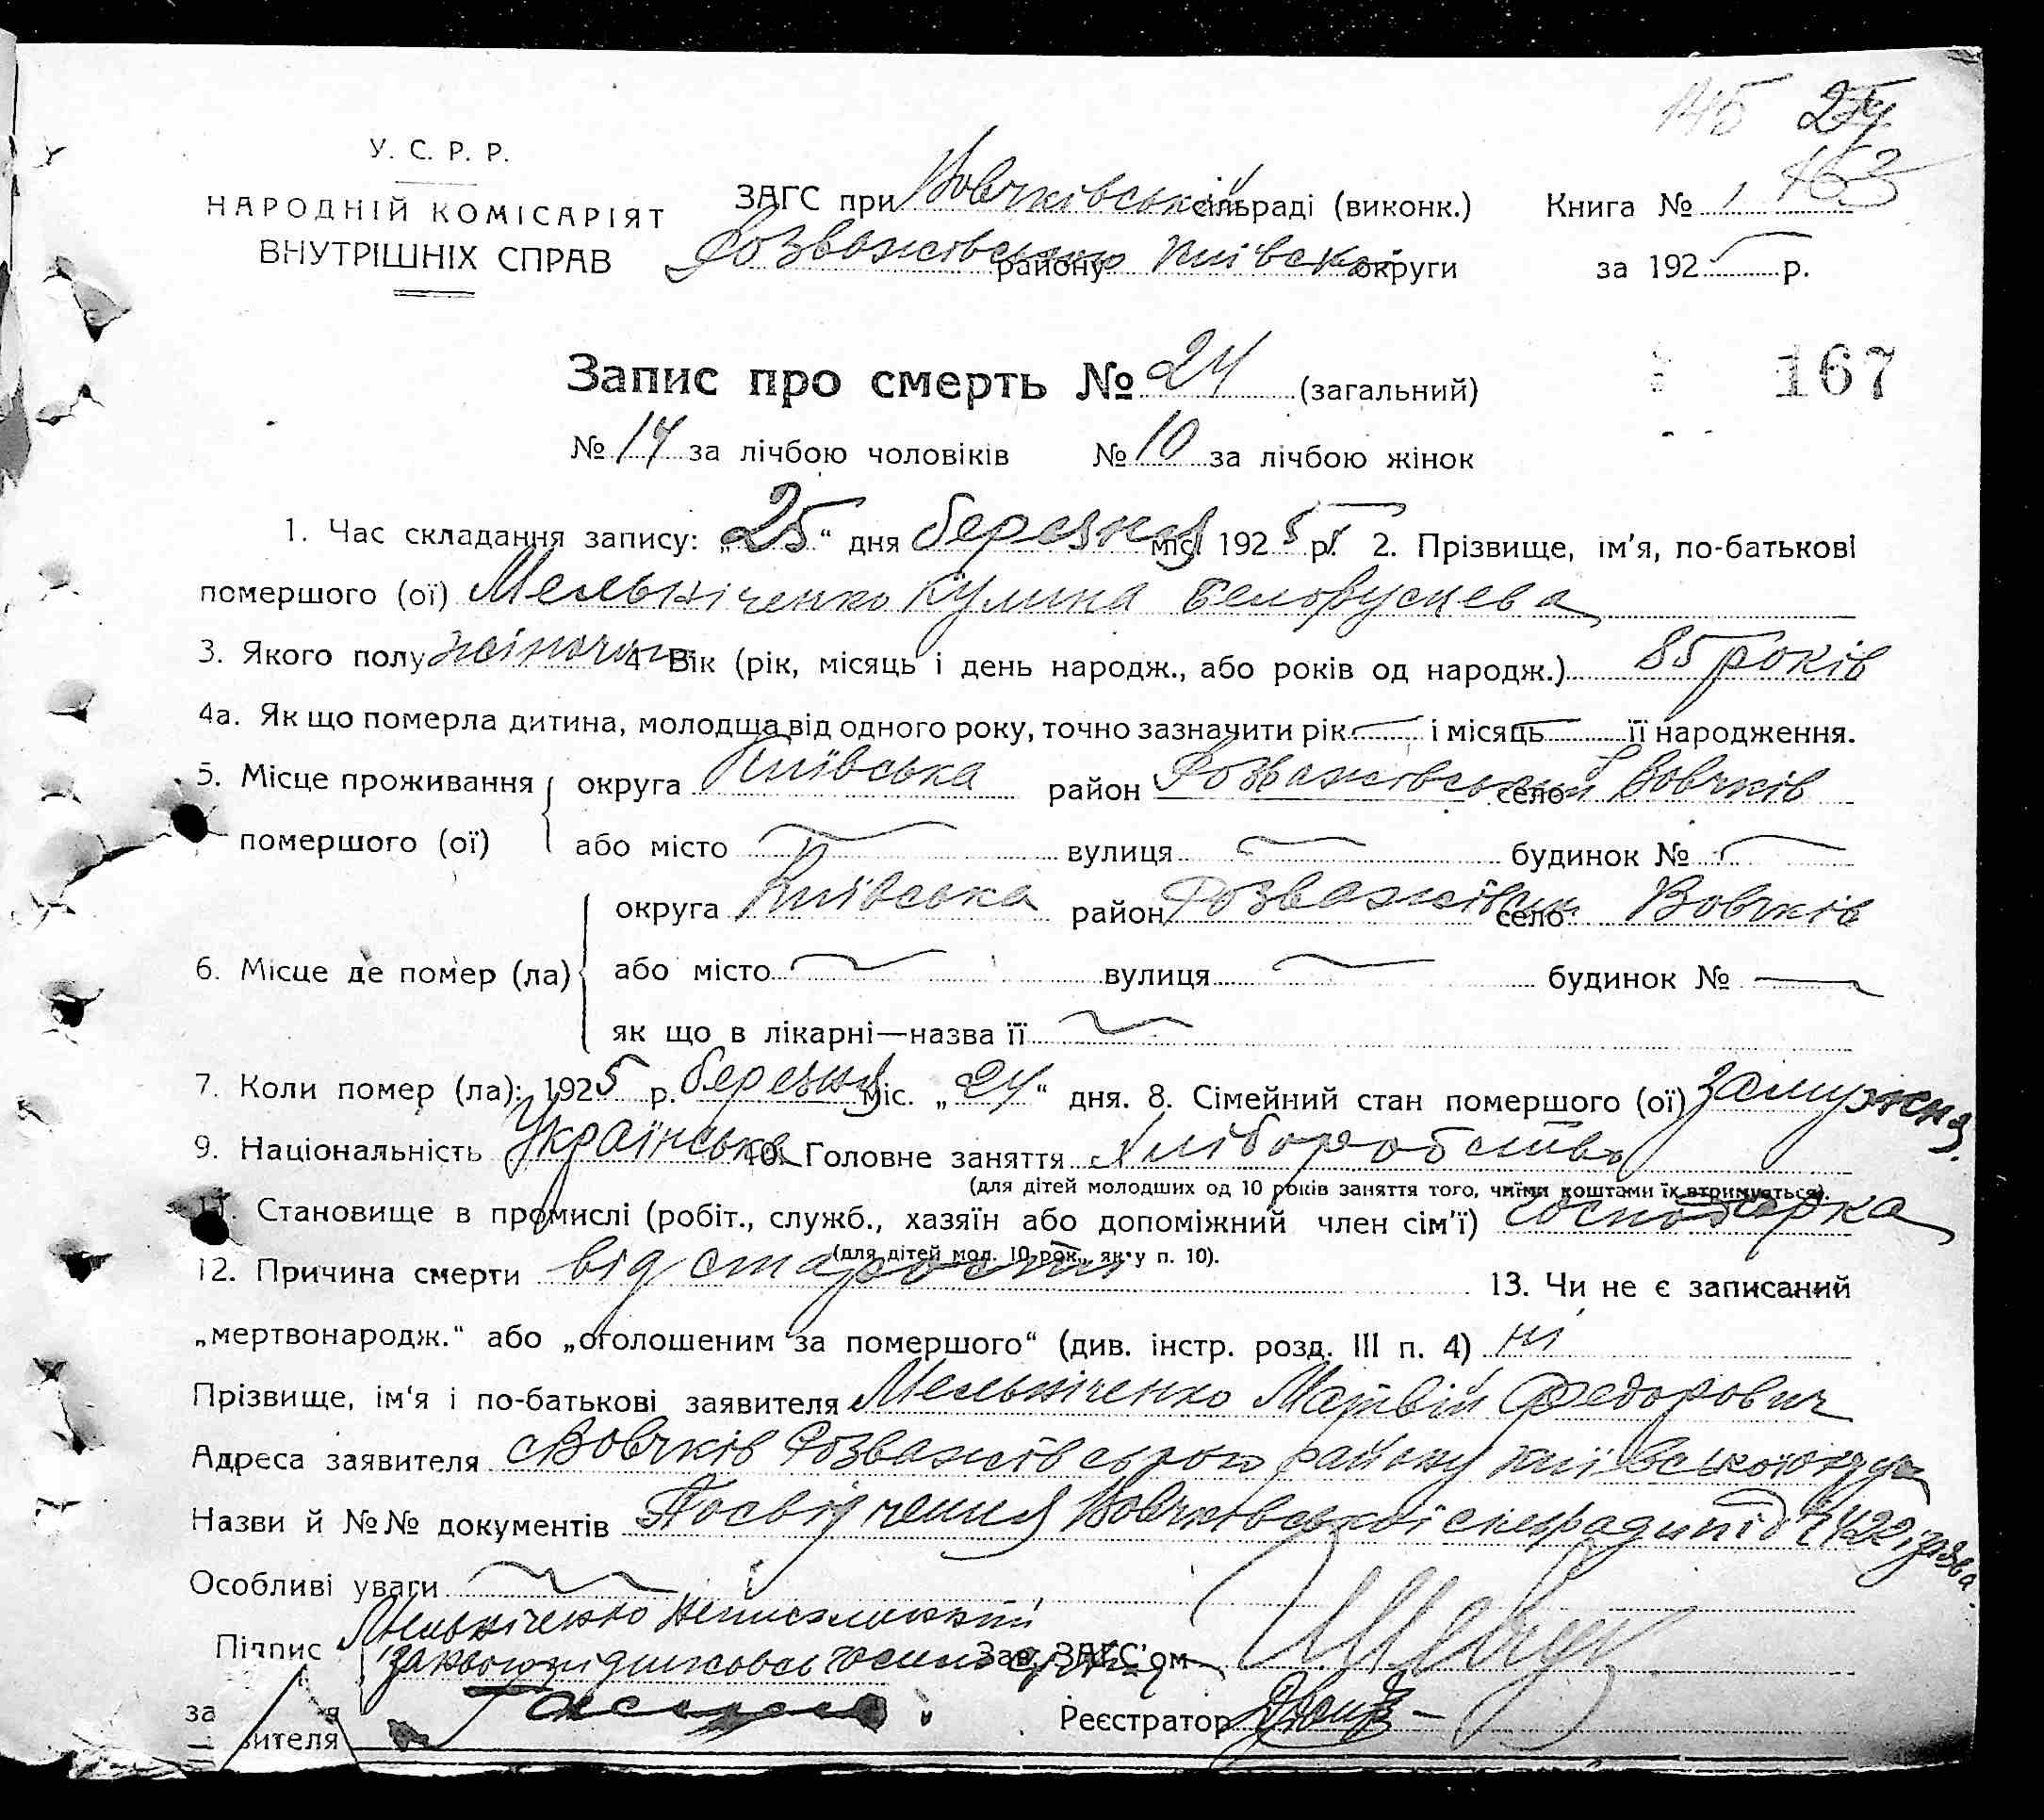 145 24
163
У. С. Р. Р.
НАРОДНІЙ КОМІСАРІЯТ
ВНУТРІШНІХ СПРАВ
ЗАГС при Вовчківській сільраді (виконк.)
Розважівського району Київської округи
Книга № 1
за 1925 р.
167
Запис про смерть № 24 (загальний)
№ 14 за лічбою чоловіків № 10 за лічбою жінок
1. Час складання запису: „25“ дня березня міс. 1925 р. 2. Прізвище, ім'я, по-батькові
помершого (ої) Мельніченко Кулина
3. Якого полу жіночим 4. Вік (рік, місяць і день народж., або років од народж.) 85 років
4а. Як що померла дитина, молодша від одного року, точно зазначити рік і місяць її народження.
5. Місце проживання округа Київська район Розважівський село Вовчків
помершого (ої) або місто вулиця будинок №
округа Київська район село Вовчків
6. Місце де помер (ла) або місто вулиця будинок №
як що в лікарні—назва її
7. Коли помер (ла): 1925 р. березня міс. „24“ дня. 8. Сімейний стан помершого (ої) замужня.
9. Національність Українська 10. Головне заняття Хліборобство
(для дітей молодших од 10 років заняття того, чиїми коштами їх втримується).
11. Становище в промислі (робіт., служб., хазяїн або допоміжний член сім'ї) господарка
(для дітей мол. 10 рок., як у п. 10).
12. Причина смерти від старости 13. Чи не є записаний
„мертвонародж.“ або „оголошеним за помершого“ (див. інстр. розд. III п. 4) ні
Прізвище, ім'я і по-батькові заявителя Мельніченко Матвій Федорович
Адреса заявителя Вовчків Розважівського району Київської округи
Назви й №№ документів Посвідчення Вовчківської сільради під
Особливі уваги
Підпис Мельніченко
Зав. ЗАГС'ом
заявителя
Реєстратор